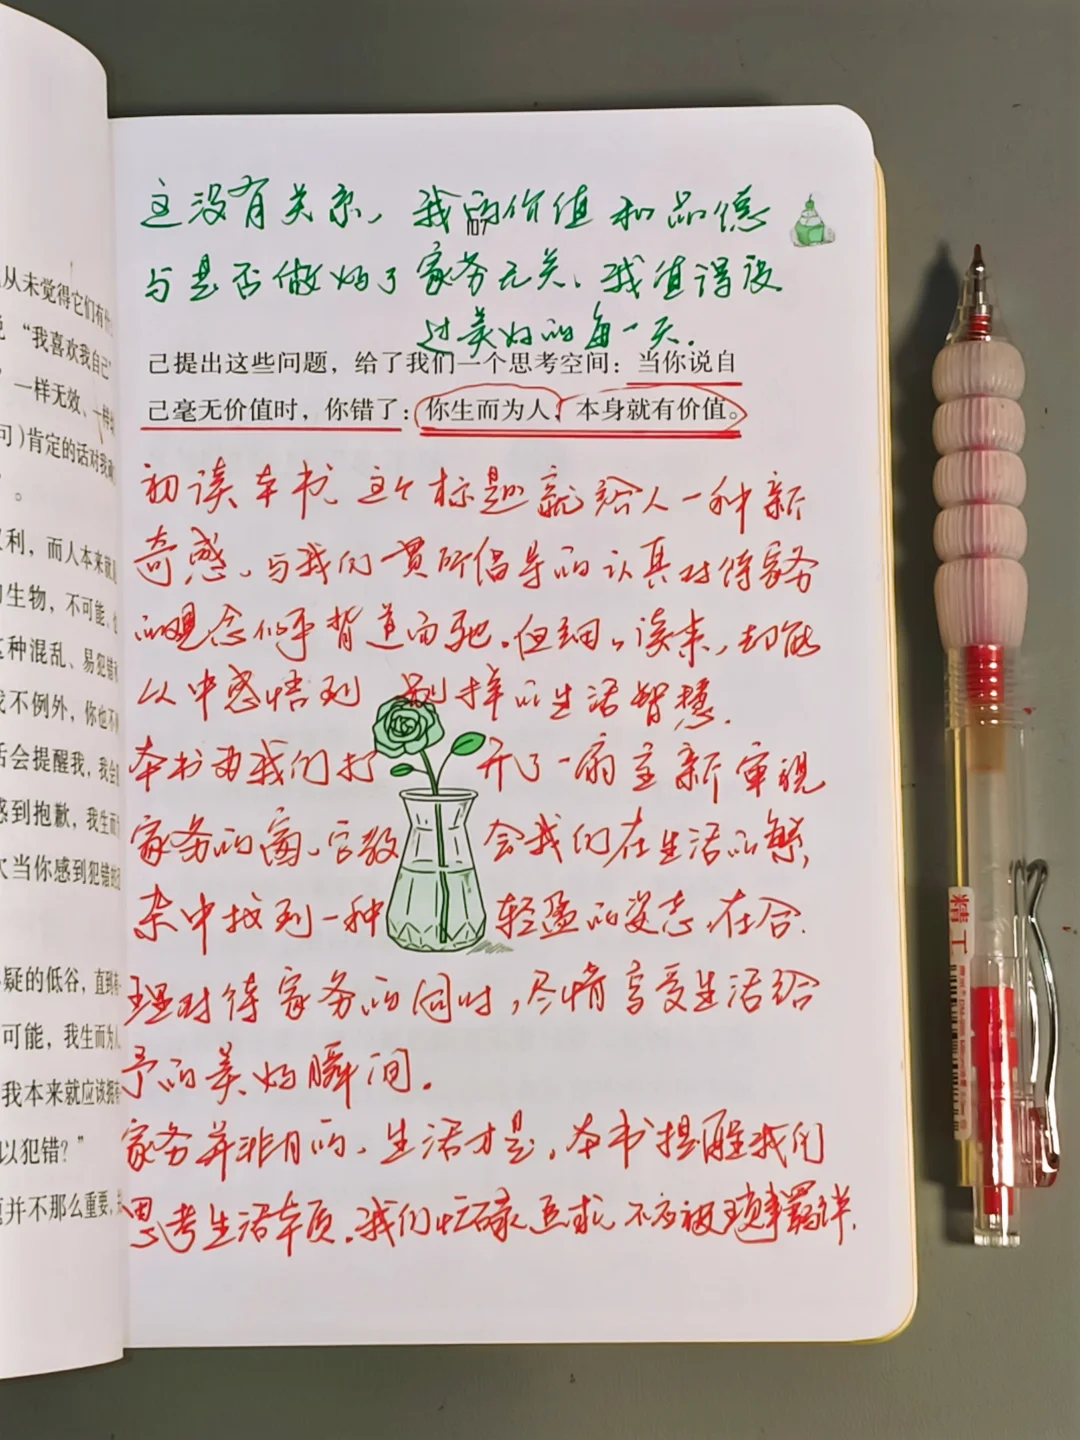 从未觉得它们有什
“我喜欢我自己”
一样无效、一样
句)肯定的话对我
。
利，而人本来就
生物，不可能
这种混乱、易犯错
我不例外，你也不
话会提醒我，我会
感到抱歉，我生而
次当你感到犯错
疑的低谷，直到
可能，我生而为人
我本来就应该拥有
以犯错？”
题并不那么重要，
这没有关系，我的价值和品德
与是否做好了家务无关，我值得设
过美好的每一天.
己提出这些问题，给了我们一个思考空间：当你说自
己毫无价值时，你错了：你生而为人，本身就有价值。
初读本书 这个标题就给人一种新
奇感，与我们一贯所倡导的认真对待家务
的观念似乎背道而驰.但细心读来，却能
从中感悟到 别样的生活智慧.
本书为我们打 开了一扇重新审视
家务的窗，它教 会我们在生活的繁
杂中找到一种 轻盈的姿态，在合
理对待家务的同时，尽情享受生活给
予的美好瞬间.
家务并非目的，生活才是，本书提醒我们
思考生活本质.我们忙碌追求 不应被琐事羁绊.
精工